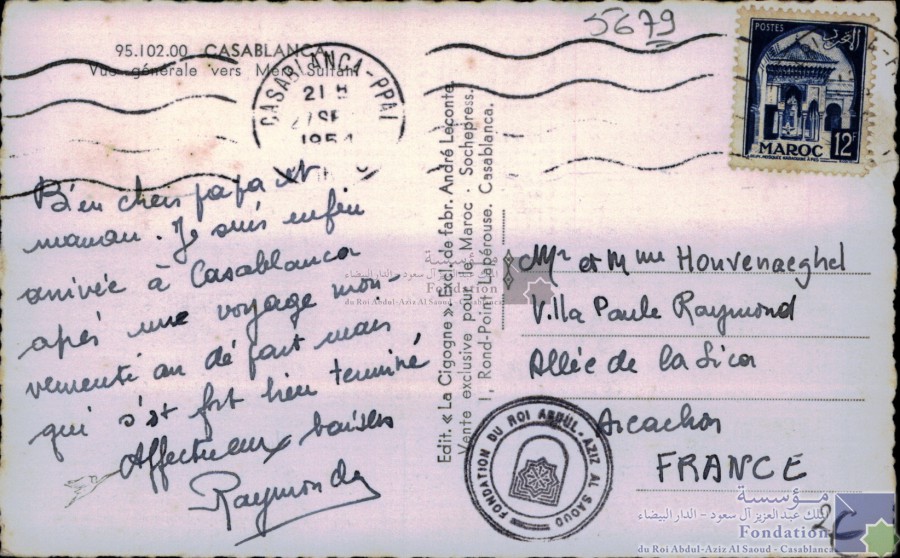 5679
95.102.00 CASABLANCA
Vue générale vers Mers Sultan
CASABLANCA-PPAL
21 H
27 SE
1954
POSTES
المغرب
MAROC 12F
Bien chers papa et
maman. Je suis enfin
arrivée à Casablanca
après une voyage mou-
vementé au départ mais
qui s'est fort bien terminé
Affectueux baisers
Raymonde
Edit. « La Cigogne » Excl. de fabr. André Leconte
Vente exclusive pour le Maroc - Sochepress.
1, Rond-Point Lapérouse. Casablanca.
Mr et Mme Houvenaeghel
Villa Paule Raymond
Allée de la
Arcachon
FRANCE
FONDATION DU ROI ABDUL-AZIZ AL SAOUD
مؤسسة
الملك عبد العزيز آل سعود - الدار البيضاء
Fondation
du Roi Abdul-Aziz Al Saoud - Casablanca
مؤسسة
الملك عبد العزيز آل سعود - الدار البيضاء
Fondation
du Roi Abdul-Aziz Al Saoud - Casablanca